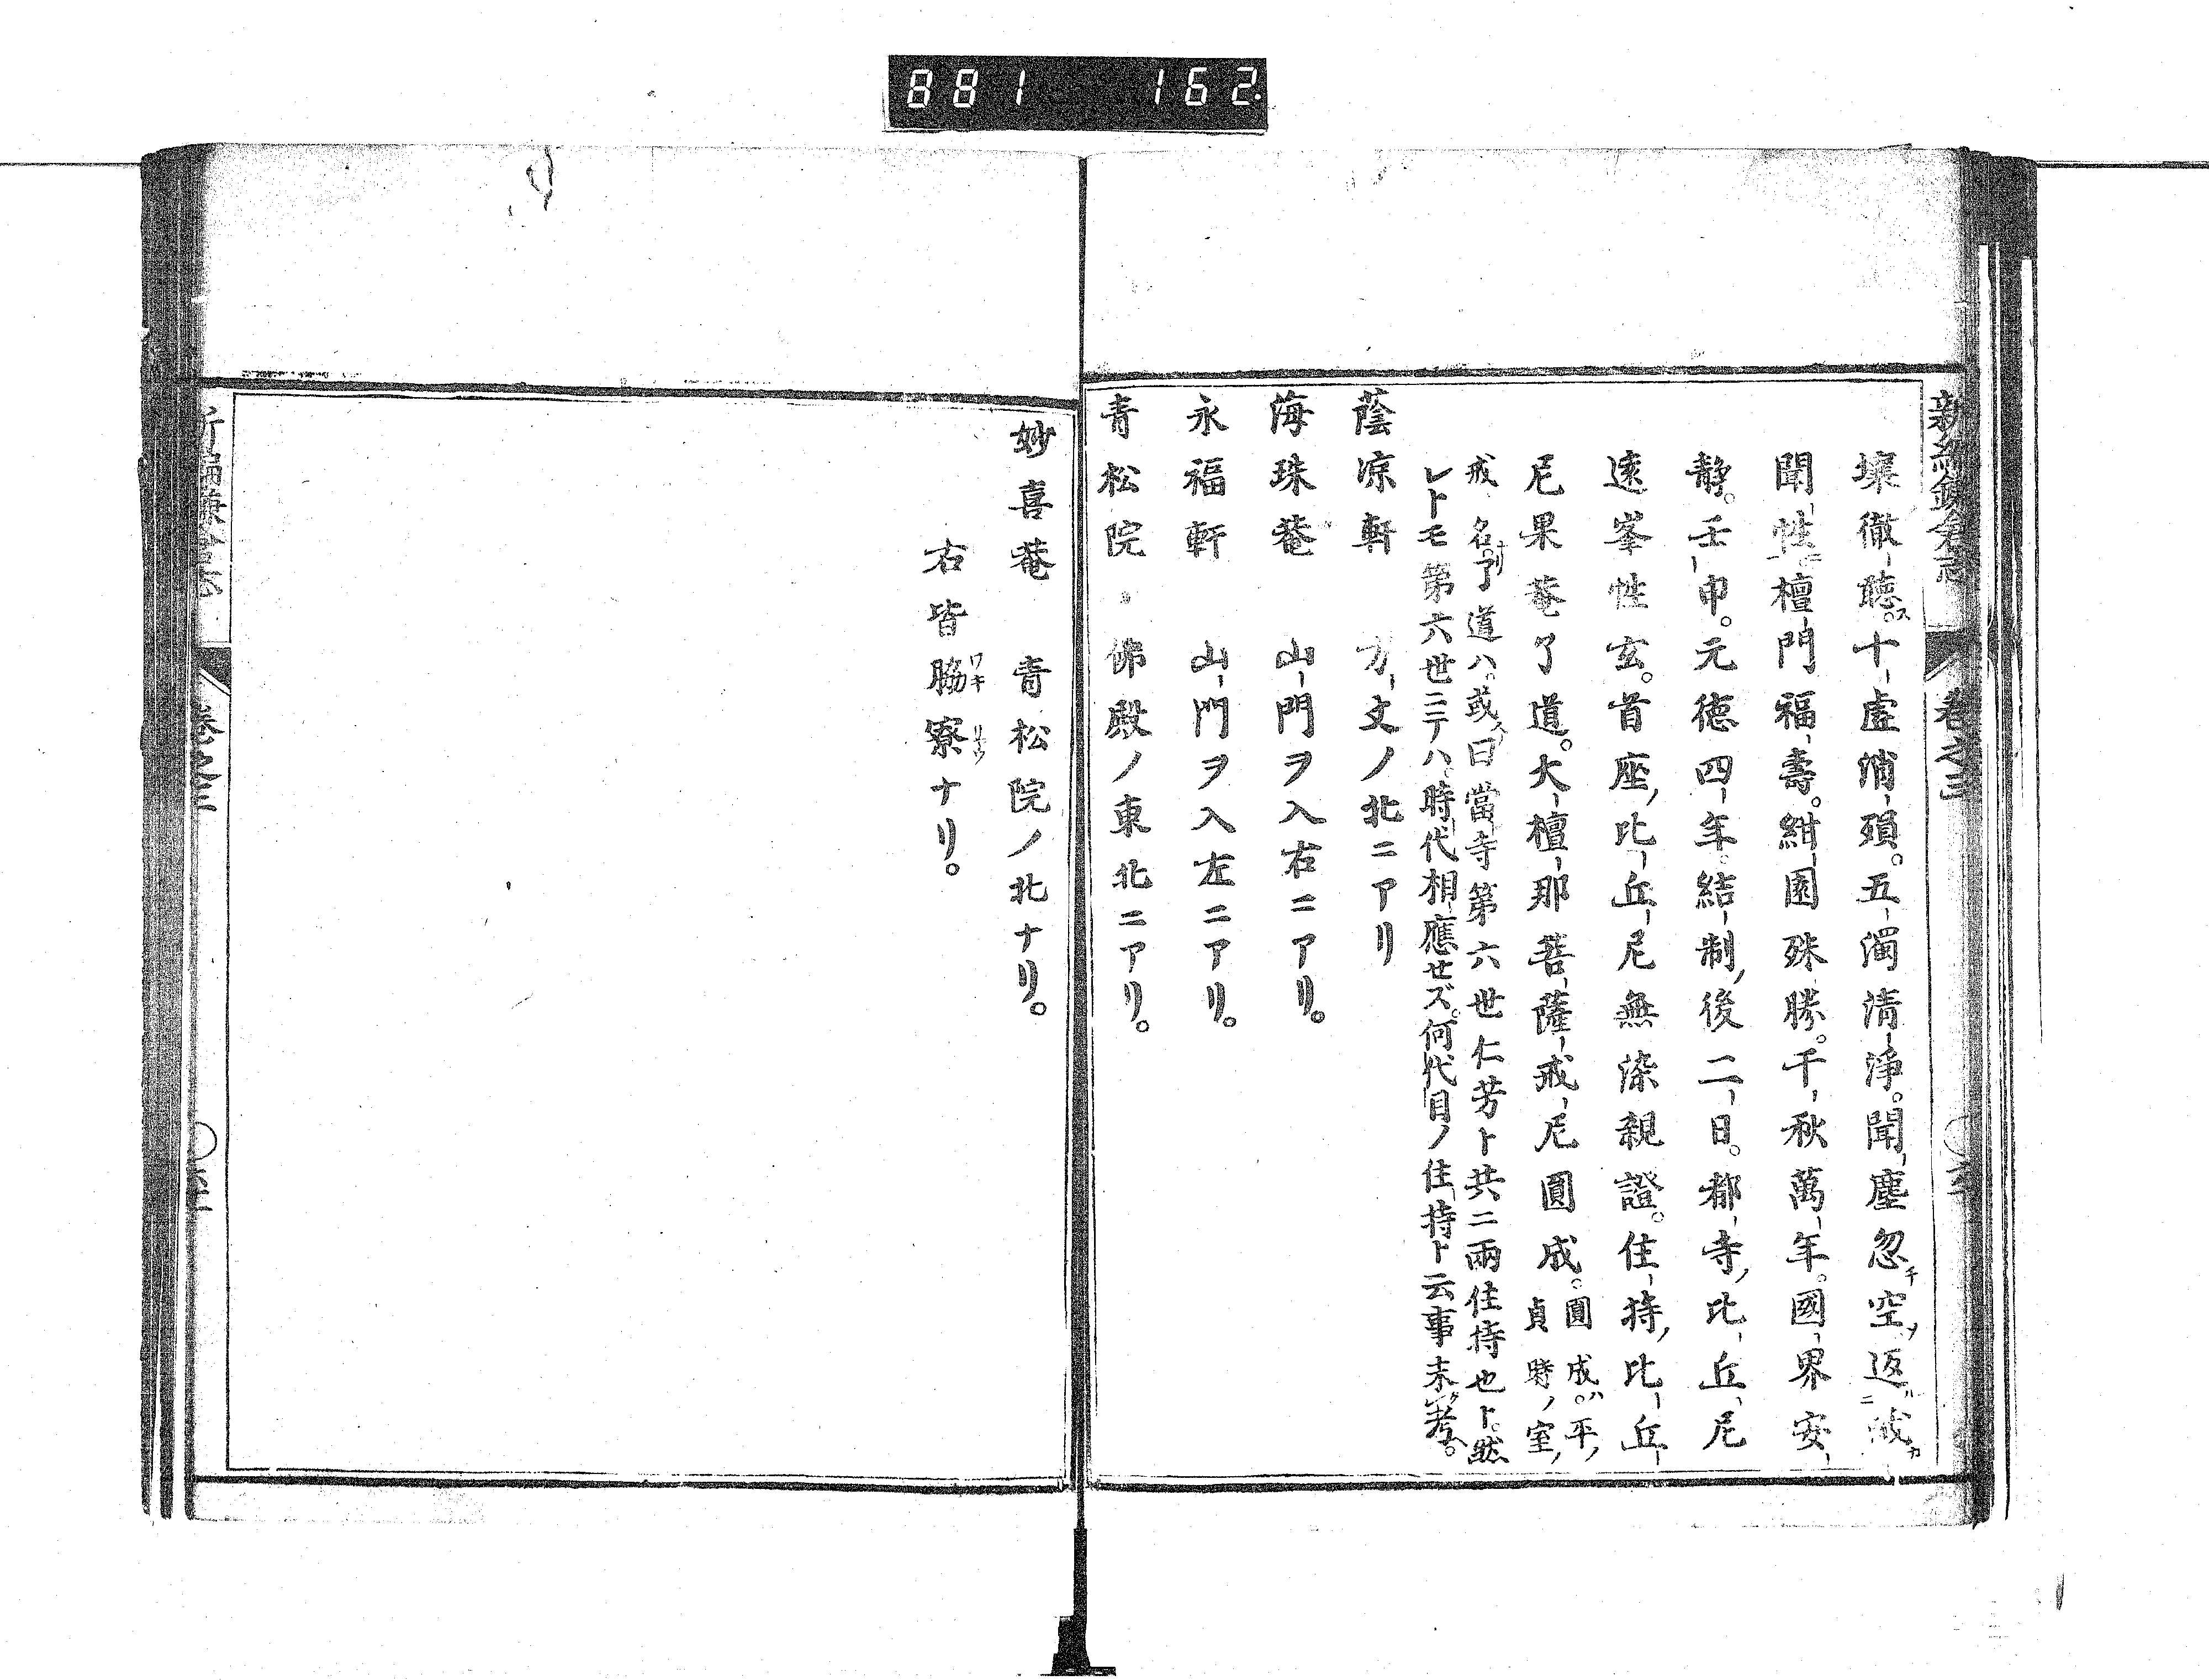 881 162
新編鎌倉志 卷之三
壤徹聽ス。十虛消殞。五濁清淨。聞塵忽チ空ヲ返
聞性ニ檀門福壽。紺園殊勝。千秋萬年。國界安
靜。壬申。元德四年。結制後二日。都寺比丘尼
遠峯性玄。首座比丘尼無染親證。住持比丘
尼果菴了道。大檀那菩薩戒尼圓成。圓成ハ。平
貞時ノ室
戒名ナリ了道ハ。或ハ曰當寺第六世仁芳ト共ニ兩住持也ト。然
レトモ第六世ニテハ。時代相應セズ。何代目ノ住持ト云事未考ヘ。
蔭凉軒 方丈ノ北ニアリ
海珠菴 山門ヲ入右ニアリ。
永福軒 山門ヲ入左ニアリ。
青松院 佛殿ノ東北ニアリ。
妙喜菴 青松院ノ北ナリ。
右皆脇ワキ寮リョウナリ。
卷之三